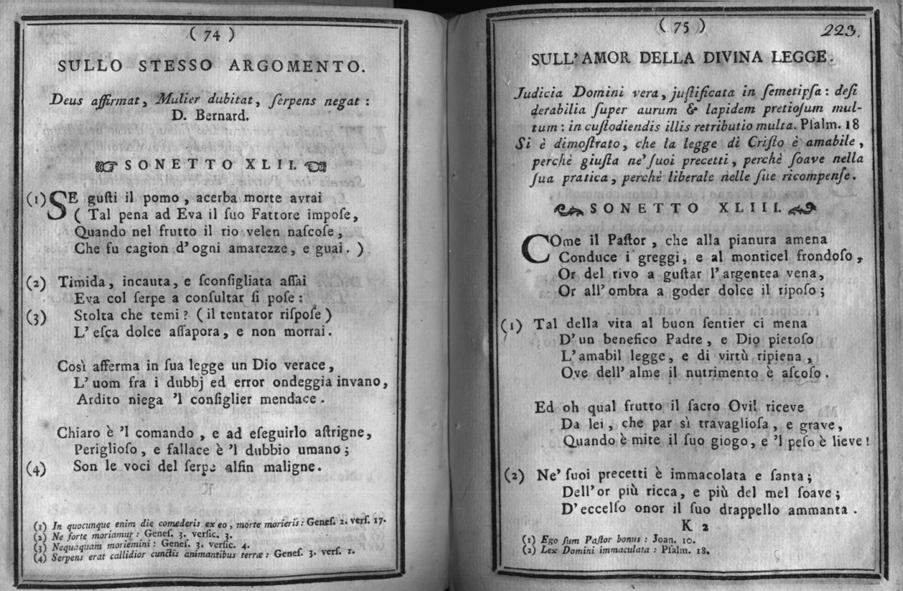 ( 74 )
SULLO STESSO ARGOMENTO.
Deus aſſirmat, Mulier dubitat, ſerpens negat :
D. Bernard.
SONETTO XLII.
(1) SE guſti il pomo, acerba morte avrai
( Tal pena ad Eva il ſuo Fattore impoſe,
Quando nel frutto il rio velen naſcoſe,
Che fu cagion d'ogni amarezze, e guai. )
(2) Timida, incauta, e ſconſigliata aſſai
Eva col ſerpe a conſultar ſi poſe :
(3) Stolta che temi ? ( il tentator riſpoſe )
L'eſca dolce aſſapora, e non morrai.
Così afferma in ſua legge un Dio verace,
L'uom fra i dubbj ed error ondeggia invano,
Ardito niega 'l conſiglier mendace.
Chiaro è 'l comando, e ad eſeguirlo aſtrigne,
Periglioſo, e fallace è 'l dubbio umano ;
(4) Son le voci del ſerpe alfin maligne.
(1) In quocunque enim die comederis ex eo, morte morieris : Geneſ. 2. verſ. 17.
(2) Ne forte moriamur : Geneſ. 3. verſic. 3.
(3) Nequaquam moriemini : Geneſ. 3. verſic. 4.
(4) Serpens erat callidior cunctis animantibus terræ : Geneſ. 3. verſ. 1.
( 75 )
223.
SULL'AMOR DELLA DIVINA LEGGE.
Judicia Domini vera, juſtificata in ſemetipſa : deſi
derabilia ſuper aurum & lapidem pretioſum mul-
tum : in cuſtodiendis illis retributio multa. Pſalm. 18
Si è dimoſtrato, che la legge di Criſto è amabile,
perchè giuſta ne' ſuoi precetti, perchè ſoave nella
ſua pratica, perchè liberale nelle ſue ricompenſe.
SONETTO XLIII.
COme il Paſtor, che alla pianura amena
Conduce i greggi, e al monticel frondoſo,
Or del rivo a guſtar l'argentea vena,
Or all'ombra a goder dolce il ripoſo ;
(1) Tal della vita al buon ſentier ci mena
D'un benefico Padre, e Dio pietoſo
L'amabil legge, e di virtù ripiena,
Ove dell'alme il nutrimento è aſcoſo.
Ed oh qual frutto il ſacro Ovil riceve
Da lei, che par sì travaglioſa, e grave,
Quando è mite il ſuo giogo, e 'l peſo è lieve !
(2) Ne' ſuoi precetti è immacolata e ſanta ;
Dell'or più ricca, e più del mel ſoave ;
D'eccelſo onor il ſuo drappello ammanta.
K 2
(1) Ego ſum Paſtor bonus : Joan. 10.
(2) Lex Domini immaculata : Pſalm. 18.